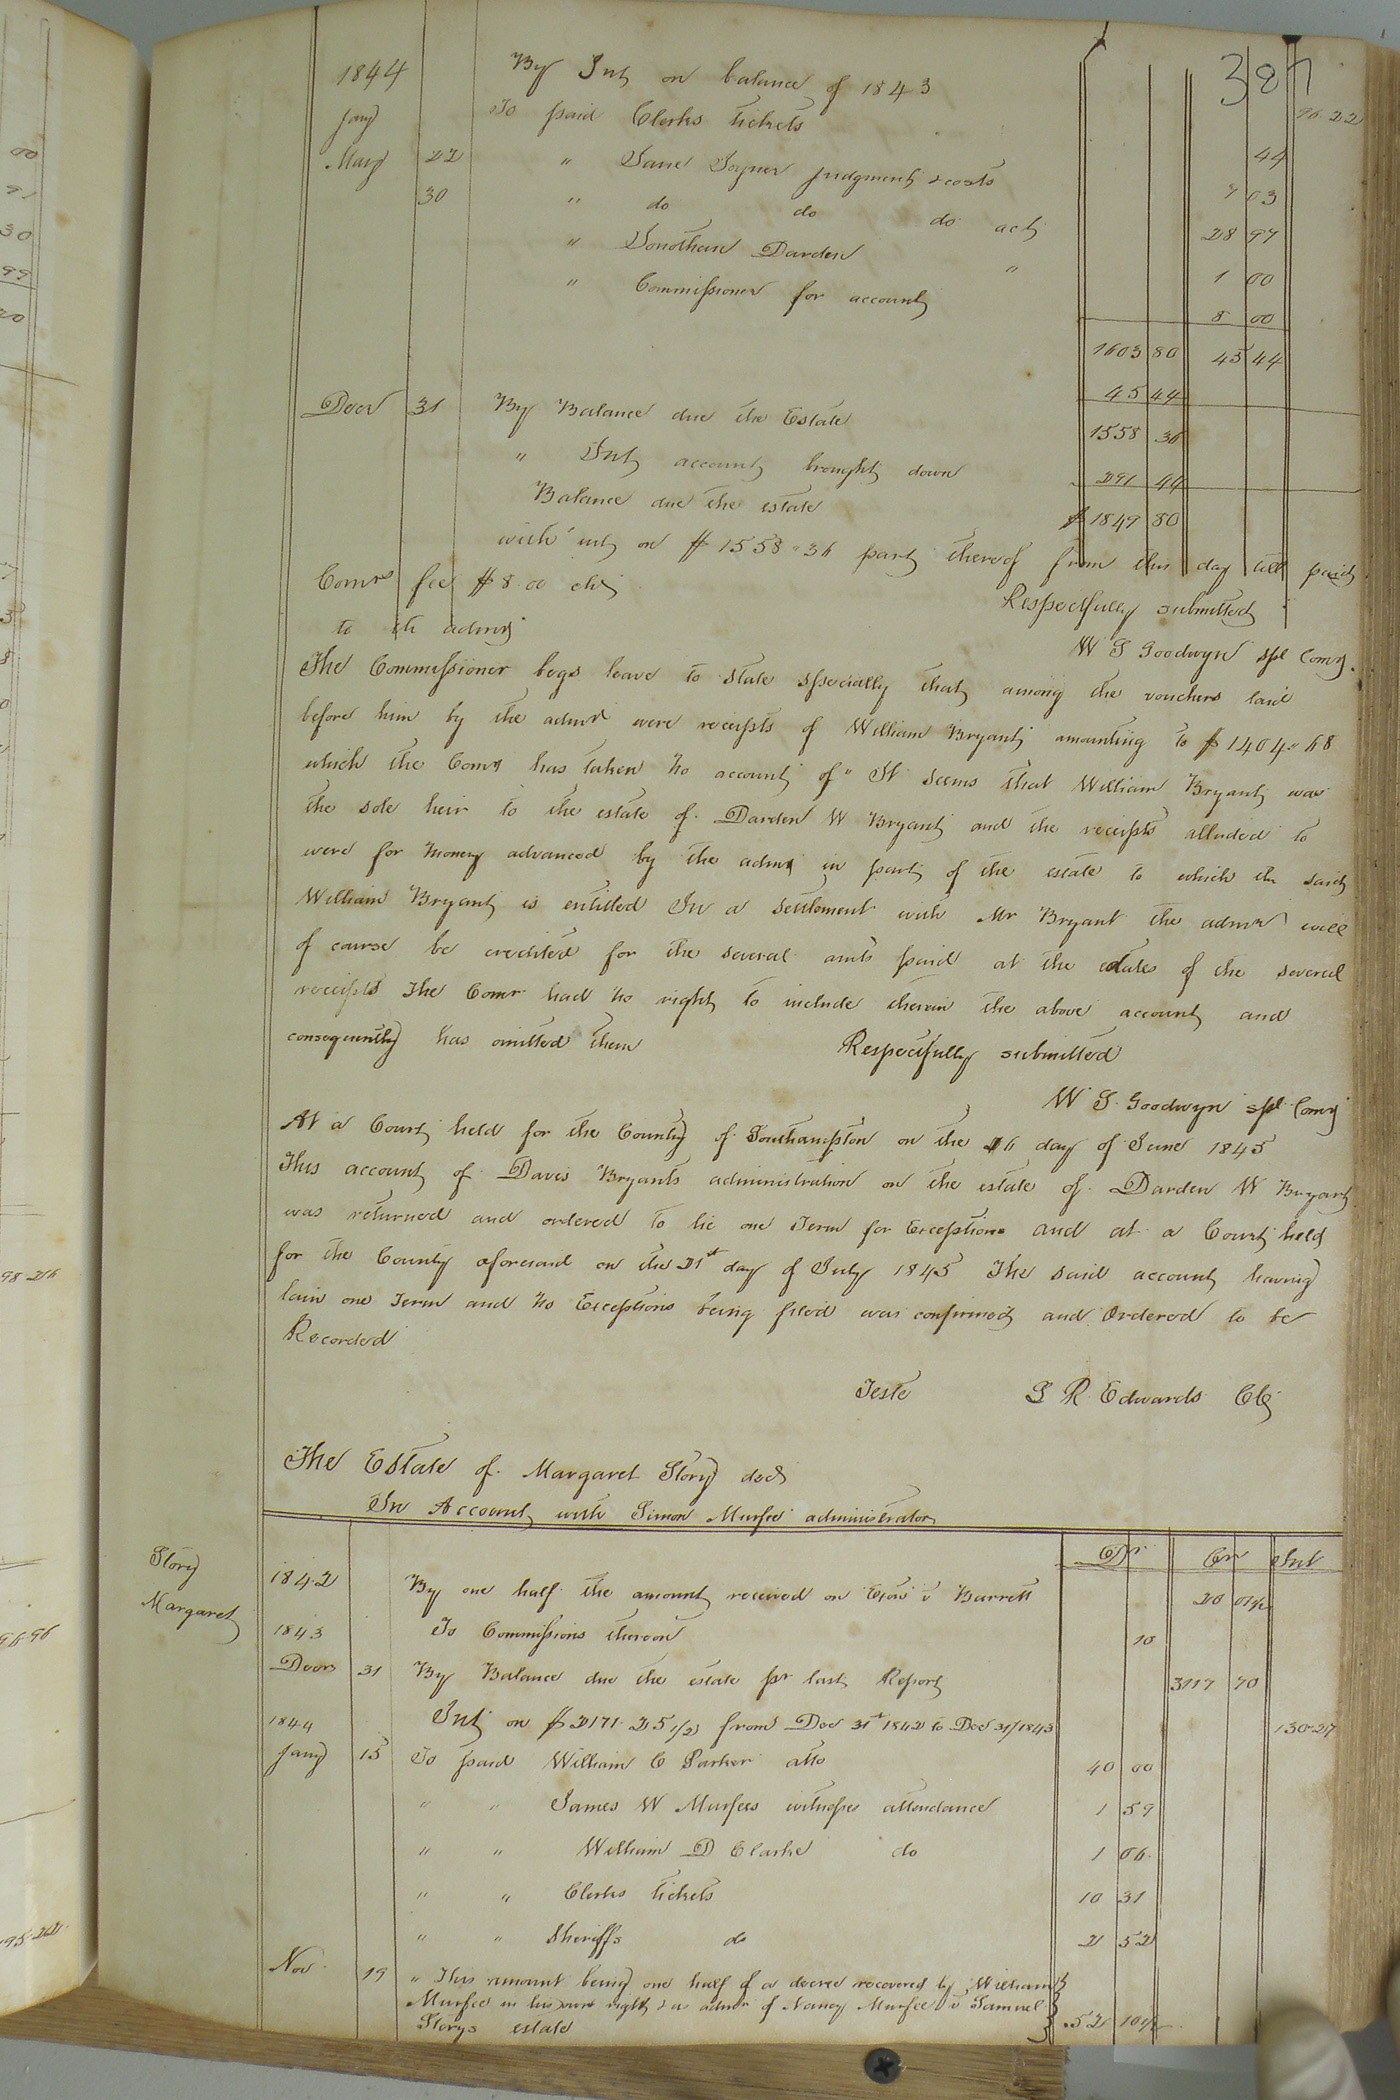 387
1844 By Int on balance of 1843 96 22
Jany To paid Clerks tickets 44
May 22 " Jane Joyner judgment & costs 7 03
30 " do do do act 28 97
" Jonathan Darden " 1 00
" Commissioner for account 8 00
1603 80 45 44
45 44
Decr 31 By Balance due the Estate 1558 36
" Int account brought down 291 44
Balance due the estate $1849 80
with int on $1558"36 part thereof from this day till paid
Comrs fee $8 00 chg Respectfully submitted
to the admr
W S Goodwyn spl Comr.
The Commissioner begs leave to state specially that among the vouchers laid
before him by the admr were receipts of William Bryant amounting to $1404"68
which the Comr has taken no account of" It seems that William Bryant was
the sole heir to the estate of Darden W Bryant and the receipts alluded to
were for money advanced by the admr in part of the estate to which the said
William Bryant is entitled In a settlement with Mr Bryant the admr will
of course be credited for the several amts paid at the dates of the several
receipts The Comr had no right to include therein the above account and
consequently has omitted them Respectfully submitted
W S. Goodwyn spl Comr
At a Court held for the County of Southampton on the 16 day of June 1845
This account of Davis Bryants administration on the estate of Darden W Bryant
was returned and ordered to lie one Term for Exceptions and at a Court held
for the County aforesaid on the 21st day of July 1845 The said account having
lain one Term and no Exceptions being filed was confirmed and Ordered to be
Recorded
Teste L R Edwards Clk
The Estate of Margaret Story decd
In Account with Simon Murfee administrator
Dr Cr Int
Story
Margaret
1842 By one half the amount received on Exon v Barrett 20 01½
1843 To Commissions thereon 10
Decr 31 By Balance due the estate pr last Report 3117 70
Int on $2171.25 1/2 from Dec 31st 1842 to Dec 31/1843 130.27
1844
Jany 15 To paid William C Parker atto 40 00
" " James W Murfees witness attendance 1 59
" " William D Clarke do 1 06
" " Clerks tickets 10 31
" " Sheriffs do 2 52
Nov 19 " This amount being one half of a decree recovered by William
Murfee in his own right & as admr of Nancy Murfee v Samuel
Storys estate 52 10½